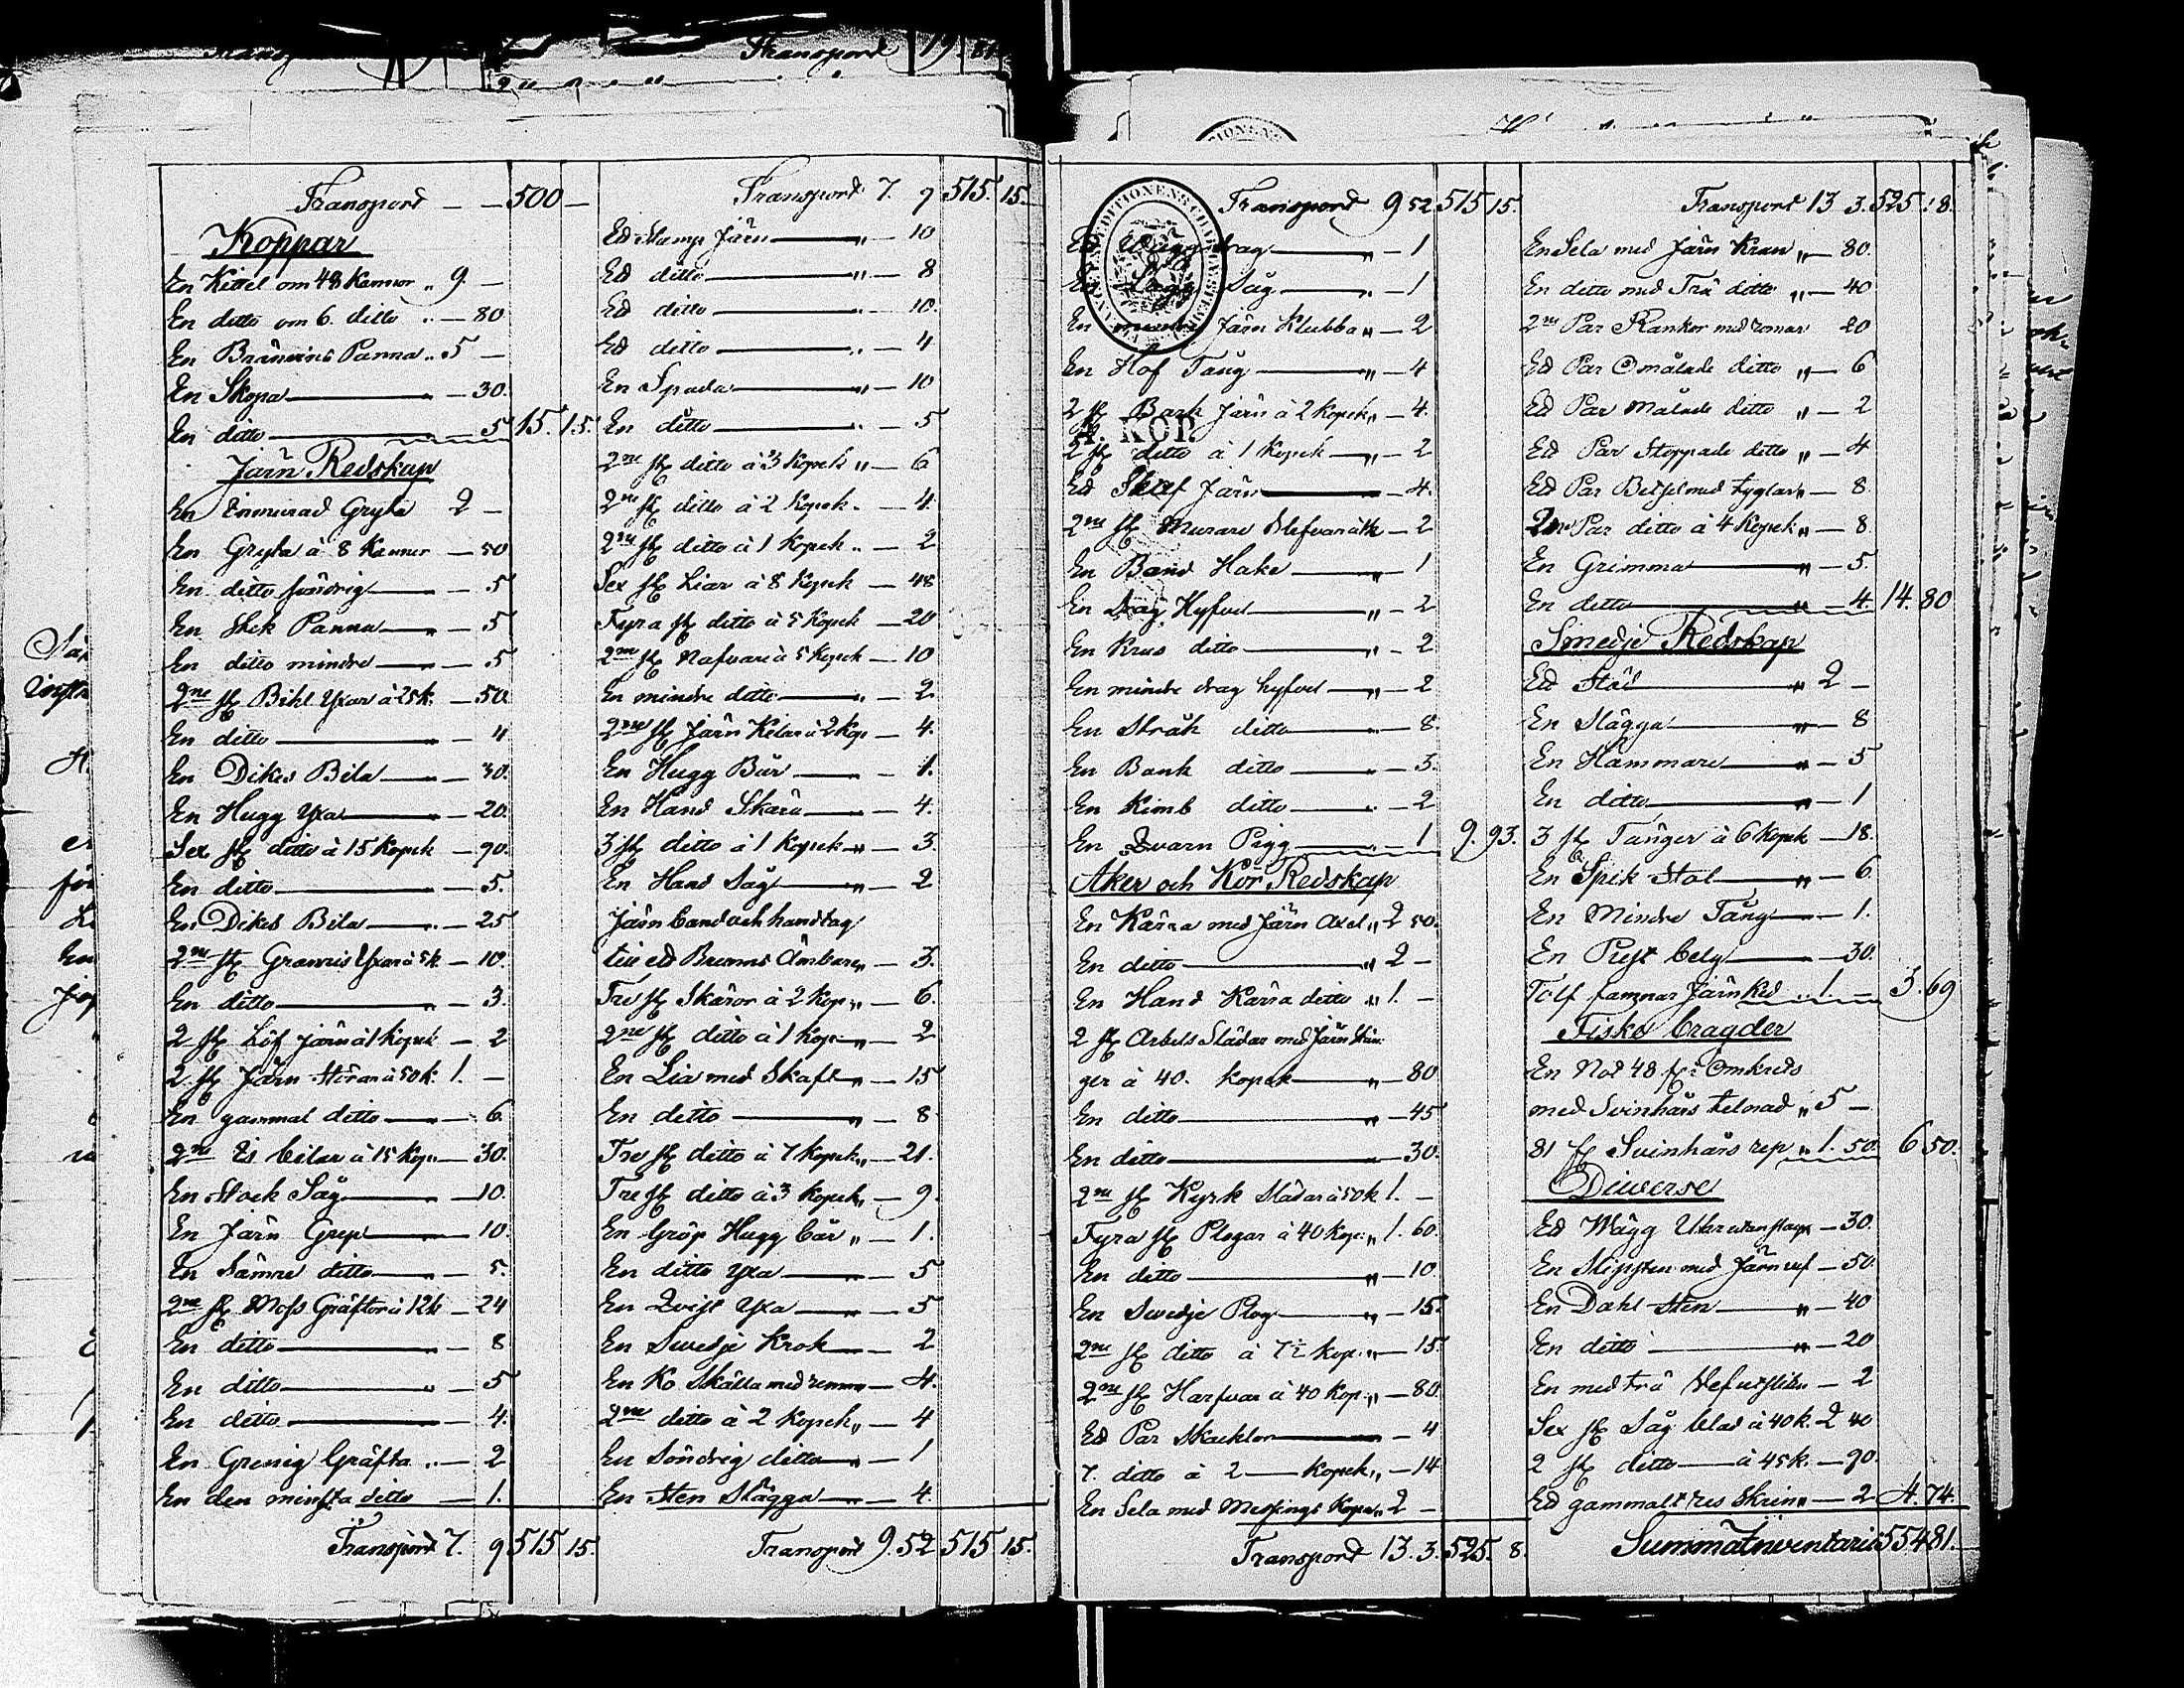 Transport 19
Transport — — 500 —
Koppar
En Kittel om 48 Kannor " 9. —
En ditto om 6. ditto " — 80
En Bränvins Panna " 5 —
En Skopa " — 30.
En ditto 5 15. 15.
Järn Redskap
En Inmurad Gryta 2 —
En Gryta à 8 Kannor — 50
En ditto söndrig — 5
En Stek Panna " — 5
En ditto mindre " — 5
2ne st Bihl Yxar à 25 k. — 50
En ditto " — 4
En Dikes Bila " — 30.
En Hugg Yxa " — 20.
Sex st ditto à 15 Kopek — 90.
En ditto " — 5.
En Dikes Bila " — 25
2ne st Granris Yxar à 5 k. — 10.
En ditto " — 3.
2 st Löf järn à 1 Kopek — 2
2 st Järn Störar à 50 k. 1. —
En gammal ditto — 6.
2ne Is bilar à 15 Kop. — 30.
En Stock Såg " — 10.
En Järn Grep " — 10.
En Sämre ditto " — 5.
2ne st Moss Gräftor à 12 k — 24
En ditto " — 8
En ditto " — 5
En ditto " — 4.
En Grenig Gräfta " — 2
En den minsta ditto — 1.
Transport 7. 9 515 15.
Transport 7. 9 515. 15.
Ed Stamp Järn " — 10
Ed ditto " — 8
Ed ditto " — 10.
Ed ditto " — 4
En Spada " — 10
En ditto " — 5
2ne st ditto à 3 Kopek " — 6
2ne st ditto à 2 Kopek. — 4.
2ne st ditto à 1 Kopek " — 2
Sex st Liar à 8 Kopek — 48
Fyra st ditto à 5 Kopek — 20
2ne st Nafvare à 5 Kopek — 10
En mindre ditto " — 2
2ne st Järn Kilar à 2 Kop — 4.
En Hugg Bår — — 1.
En Hand Skära — — 4.
3 st ditto à 1 Kopek " — 3.
En Hand Såg " — 2
Järn band och handtag
till ed Brunns Ämbare " — 3.
Tre st Skäror à 2 Kop " — 6.
2ne st ditto à 1 Kop " — 2
En Lia med Skaft " — 15
En ditto " — 8
Tre st ditto à 7 Kopek " — 21.
Tre st ditto à 3 Kopek " — 9.
En Gröp Hugg bår " — 1.
En ditto Yxa " — 5
En Qvist Yxa " — 5
En Swedje Krok " — 2
En Ko Skälla med remm — 4.
2ne ditto à 2 Kopek " — 4
En Söndrig ditto " — 1
En Sten Slägga — — 4.
Transport 9. 52 515 15.
Transport 9 52 515 15.
Ed drag " — 1
Såg " — 1
En mindre Järn Klubba " — 2
En Hof Tång " — 4
2 st Bark Järn à 2 Kopek " — 4.
2 st ditto à 1 Kopek " — 2
Ed Skaf Järn — 4.
2ne st Murare — 2
En Band Hake " — 1
En Drag Hyfvel " — 2
En Krus ditto " — 2
En mindre drag hyfvel " — 2
En Stråk ditto " — 8.
En Bank ditto " — 3.
En Kimb ditto " — 2
En Qvarn Pigg " — 1 9. 93.
Åker och Kör Redskap
En Kärra med Järn Axel " 2 50.
En ditto " 2 —
En Hand Kärra ditto " 1. —
2 st Arbets Slädar med Järn Skin:
ger à 40. Kopek " — 80
En ditto " — 45
En ditto — 30.
2ne st Kyrk Slädar à 50 k 1. —
Fyra st Plogar à 40 Kop. " 1. 60.
En ditto " — 10.
En Swedje Plog " — 15.
2ne st ditto à 7½ Kop. " — 15
2ne st Harfvar à 40 Kop. " — 80.
Ed Par Skacklor — 4
7. ditto à 2 — Kopek " — 14
En Sela med Messings Kopa " 2 —
Transport 13. 3. 525. 8.
Transport 13 3. 525. 8.
En Sela med Järn Kran " — 80.
En ditto med Trä ditto " — 40
2ne Par Rankor med remar 20
Ed Par Omålade ditto " — 6
Ed Par Målade ditto " — 2
Ed Par Stoppade ditto " — 4
Ed Par Betsel med tyglar " — 8.
2ne Par ditto à 4 Kopek " — 8.
En Grimma " — 5.
En ditto " — 4. 14. 80
Smedje Redskap
Ed Städ " 2 —
En Slägga " — 8
En Hammare " — 5
En ditto " — 1
3 st Tänger à 6 Kopek — 18.
En Spik Stol " — 6.
En Mindre Tång — 1.
En Pust belg — 30.
Tolf famnar Järn Ked " 1. — 3. 69
Fiske bragder
En Not 48 f: i Omkrets
med Svinhårs telnad " 5 —
81 f Svinhårs rep " 1. 50. 6 50.
Diverse
Ed Wägg Uhr utan — 30.
En Slipsten med Järn vef — 50.
En Dahl Sten " — 40
En ditto " — 20
En med trä Vef — 2
Sex st Såg blad à 40 k. 2 40
2 st ditto — à 45 k. — 90.
Ed gammalt res Skrin " — 2 4. 74.
Summa Inventarie 554 81.